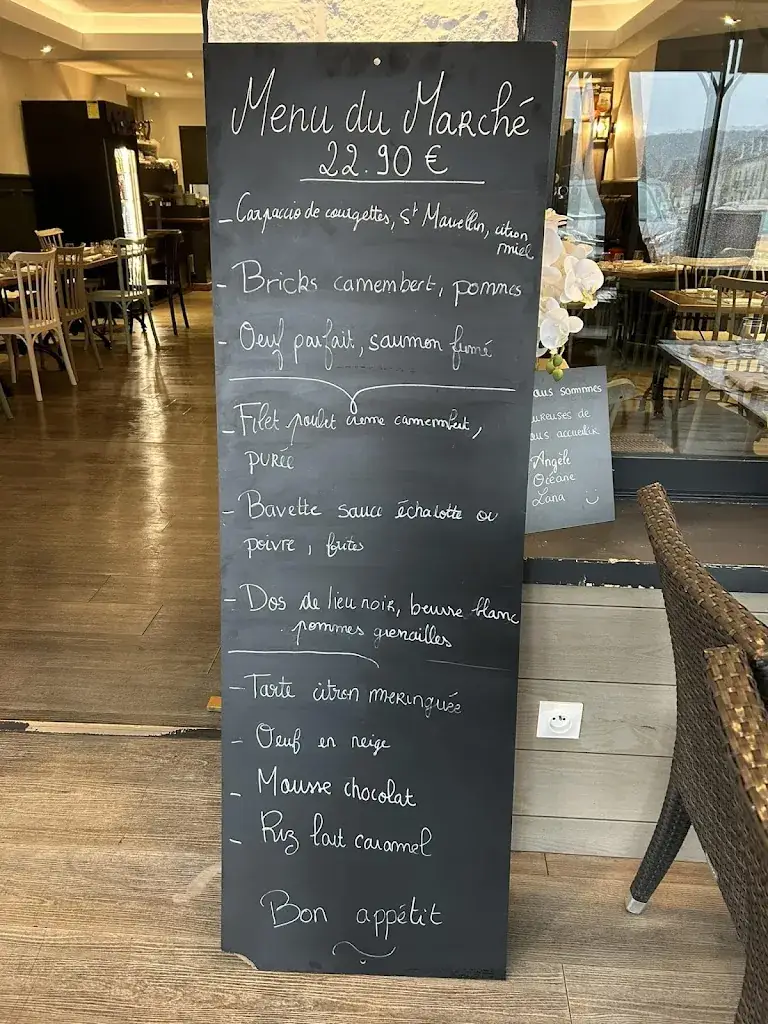 Menu du Marché
22.90 €
- Carpaccio de courgettes, St Marcellin, citron
miel
- Bricks camembert, pommes
- Oeuf parfait, saumon fumé
- Filet poulet crème camembert,
purée
- Bavette sauce échalotte ou
poivre, frites
- Dos de lieu noir, beurre blanc
pommes grenailles
- Tarte citron meringuée
- Oeuf en neige
- Mousse chocolat
- Riz lait caramel
Bon appétit
ous sommes
ureuses de
us accueillir
Angèle
Océane
Lana